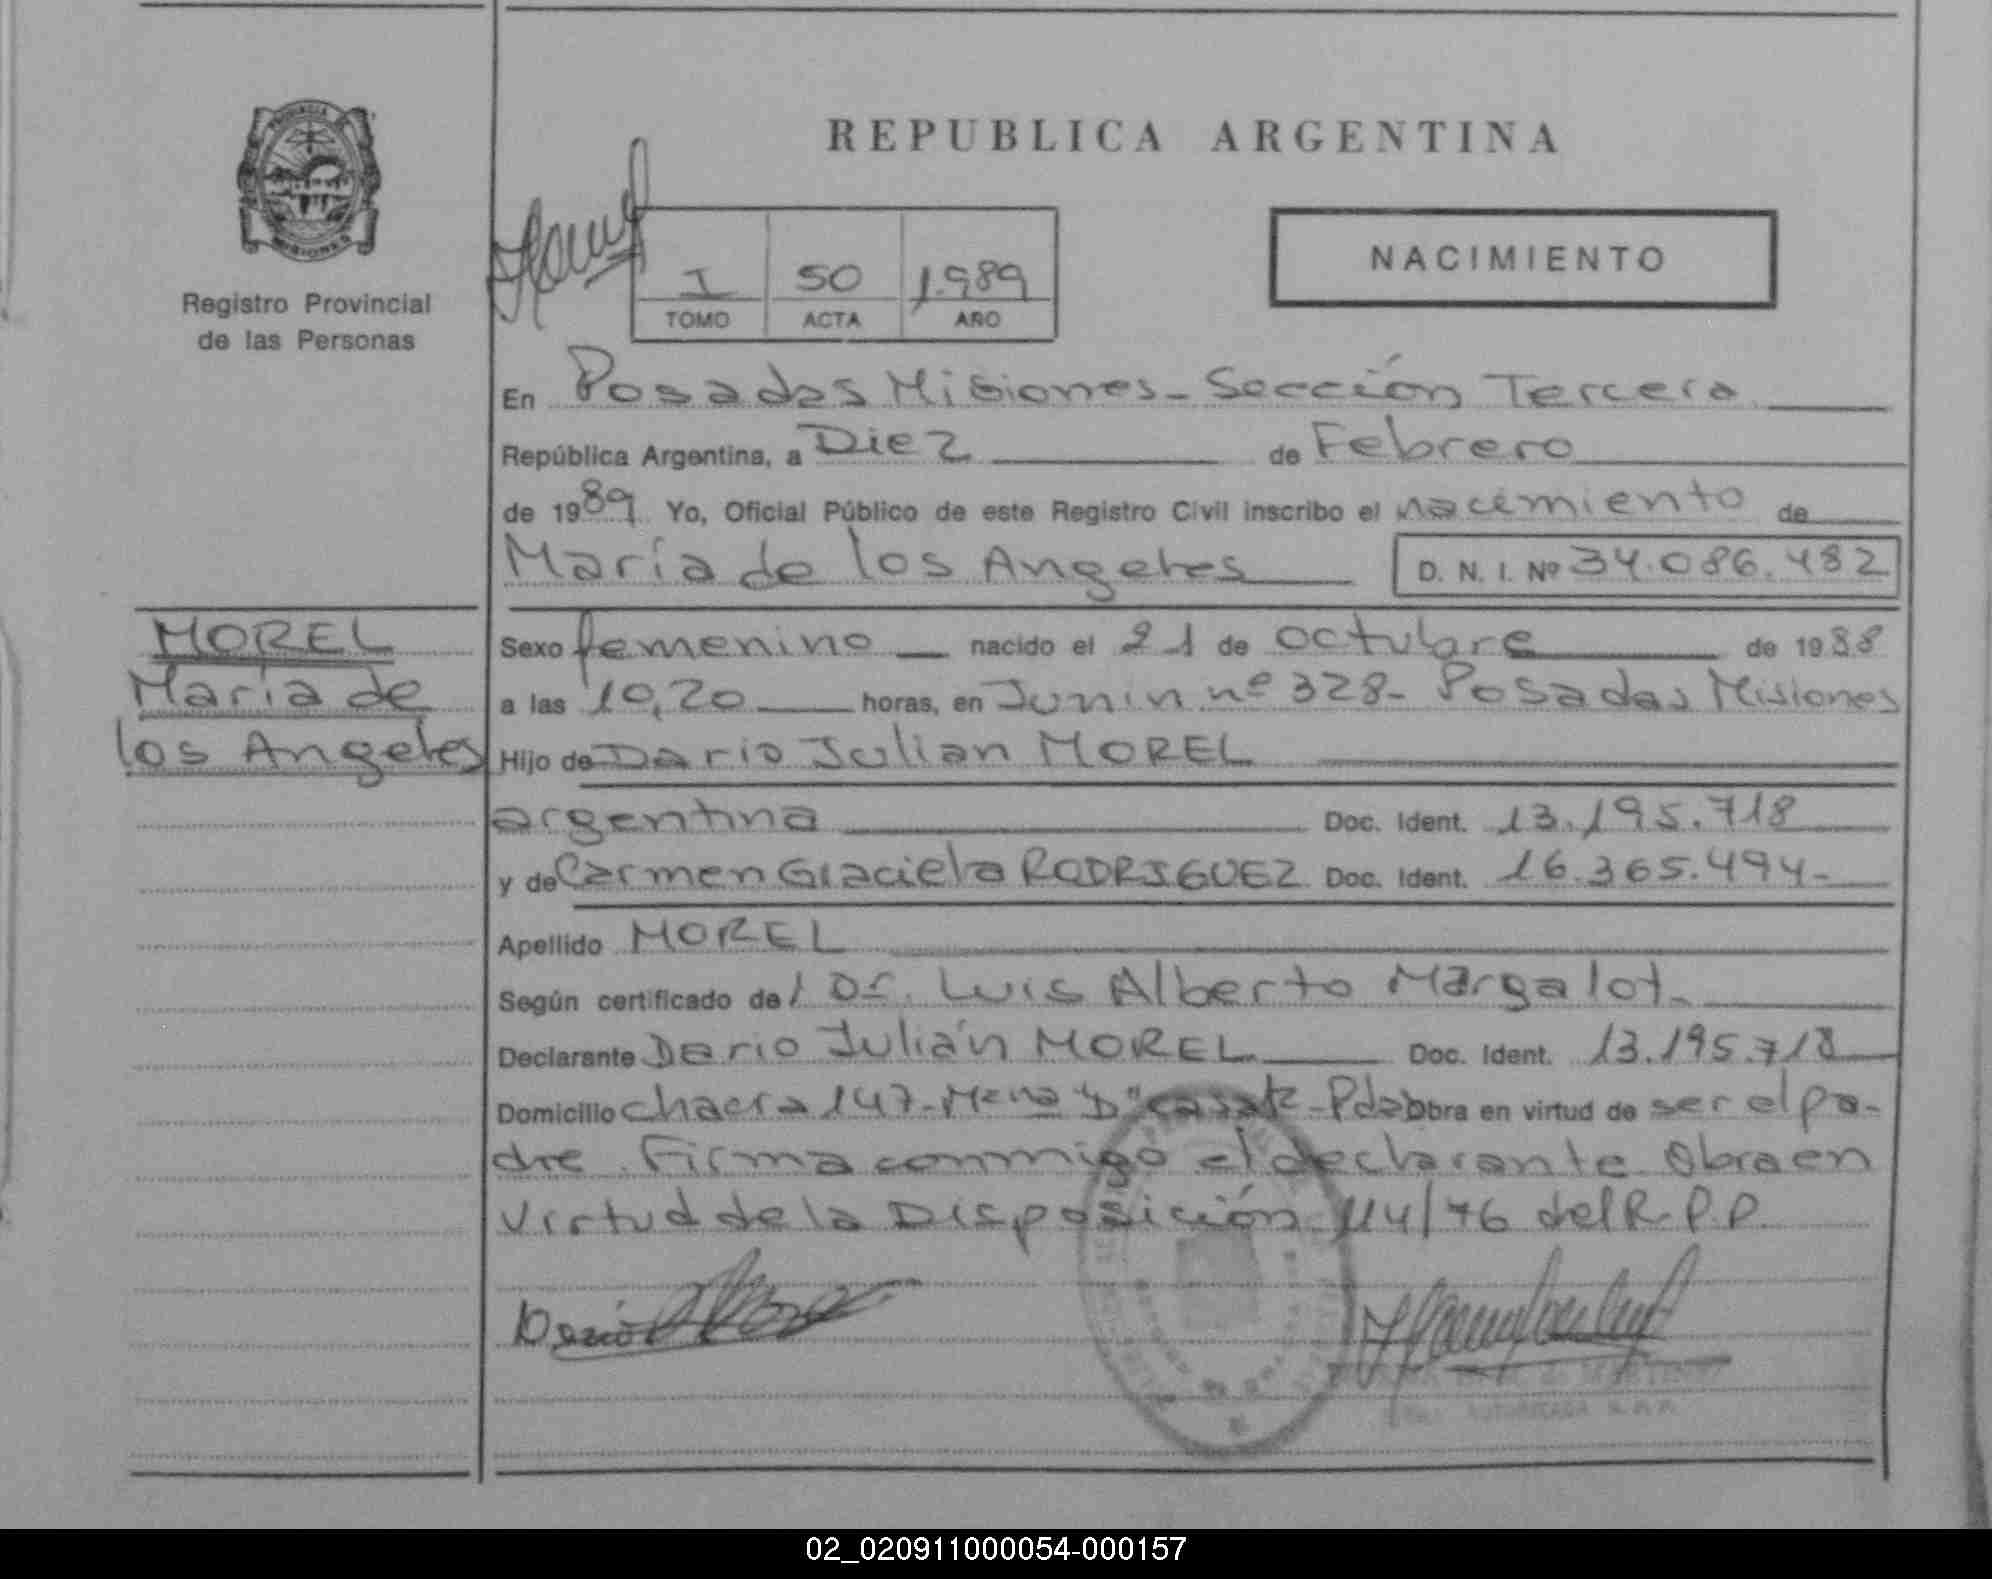 PROVINCIA DE
MISIONES
Registro Provincial
de las Personas
REPUBLICA ARGENTINA
I 50 1.989
TOMO ACTA AÑO
NACIMIENTO
En Posadas Misiones - Sección Tercera
República Argentina, a Diez de Febrero
de 1989 Yo, Oficial Público de este Registro Civil inscribo el nacimiento de
María de los Angeles D. N. I. Nº 34.086.482
MOREL
María de
los Angeles
Sexo femenino nacido el 21 de octubre de 1988
a las 10,20 horas, en Junin nº 328- Posadas Misiones
Hijo de Dario Julian MOREL
argentina Doc. Ident. 13.195.718
y de Carmen Graciela RODRIGUEZ Doc. Ident. 16.365.494-
Apellido MOREL
Según certificado de l Dr. Luis Alberto Margalot.
Declarante Dario Julián MOREL Doc. Ident. 13.195.718
Domicilio chacra 147- Mzna "D" casa Pdas Obra en virtud de ser el pa-
dre. Firma conmigo el declarante Obra en
virtud de la Disposición 114/76 del R.P.P.
Dario
AUTORIZADA R.P.P.
02_020911000054-000157